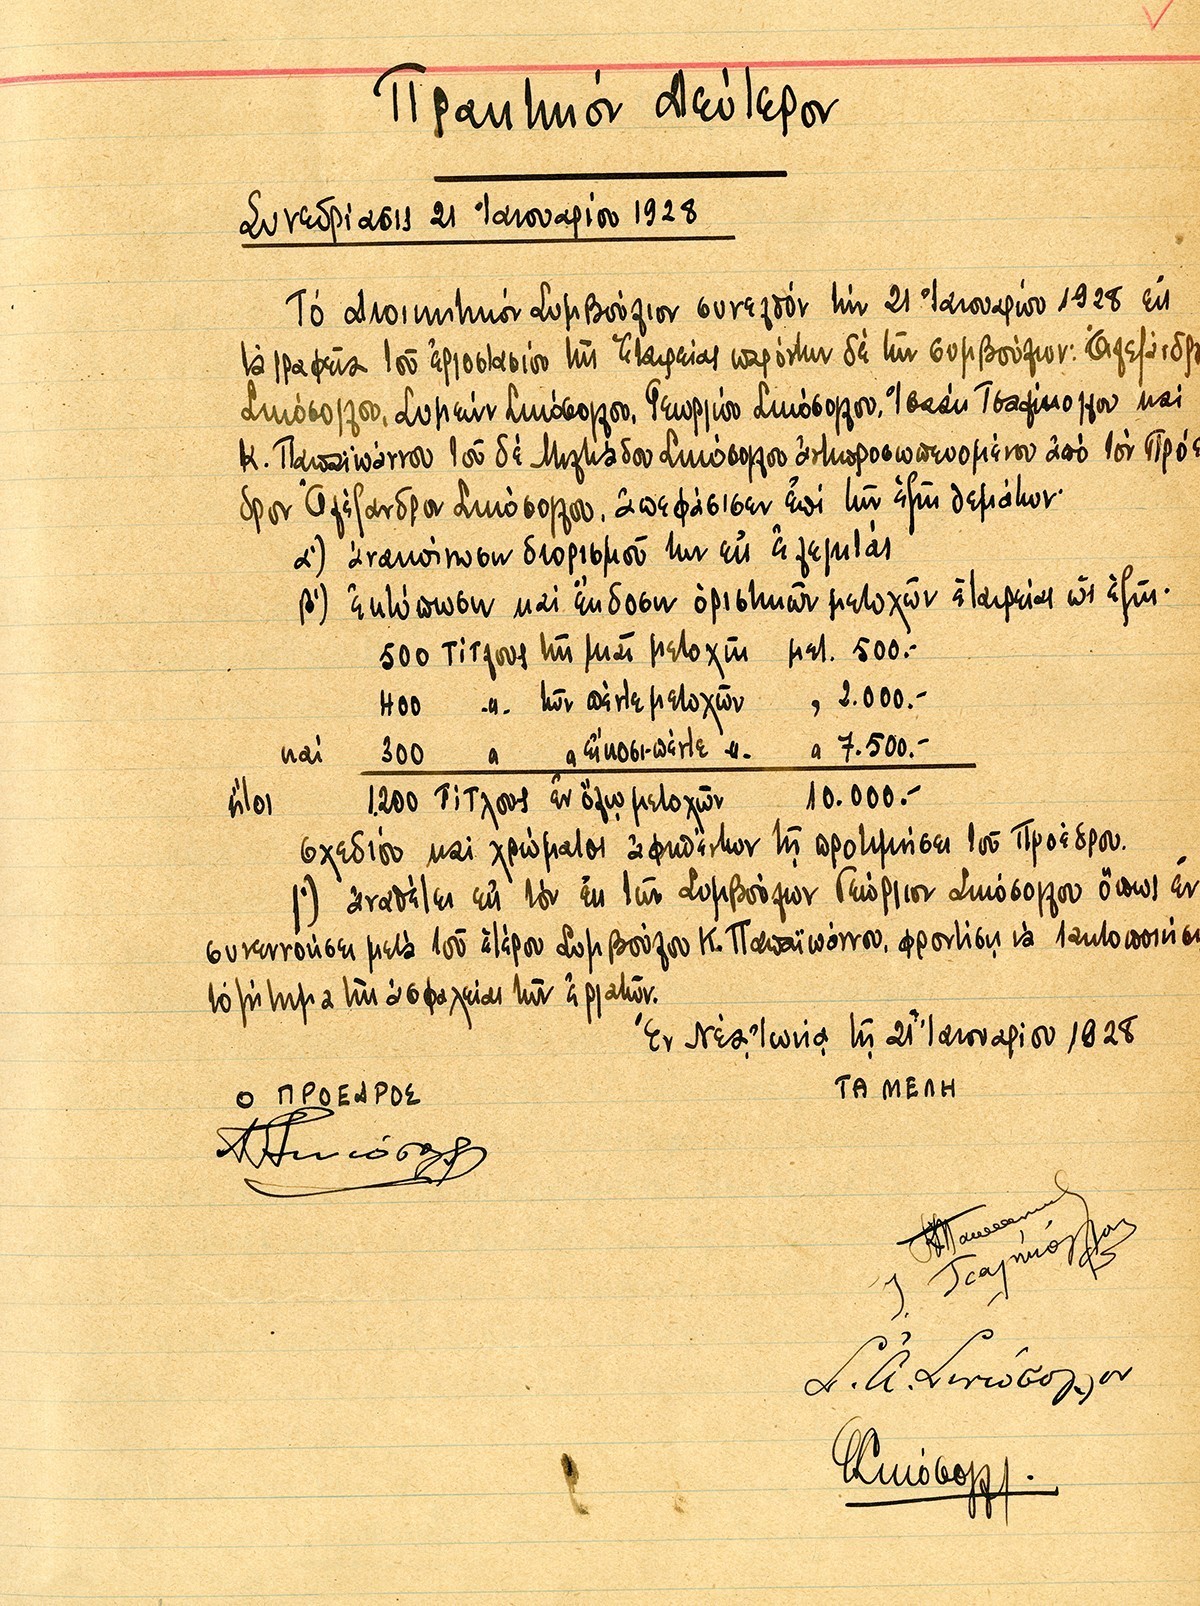 Πρακτικόν Δεύτερον
Συνεδρίασις 21 Ἰανουαρίου 1928
Τό Διοικητικόν Συμβούλιον συνελθόν τήν 21 Ἰανουαρίου 1928 εἰς
τά γραφεῖα τοῦ ἐργοστασίου τῆς Ἑταιρείας παρόντων δέ τῶν συμβούλων: Ἀλεξάνδρου
Σινιόσογλου, Συμεών Σινιόσογλου, Γεωργίου Σινιόσογλου, Ἰσαάκ καί
Κ. Παπαϊωάννου τοῦ δέ Μιλτιάδου Σινιόσογλου ἀντιπροσωπευομένου ἀπό τόν Πρόε
δρον Ἀλέξανδρον Σινιόσογλου, ἀπεφάσισεν ἐπί τῶν ἑξῆς θεμάτων·
α΄) ἀνακοίνωσιν διορισμοῦ των εἰς ἐλεγκτάς
β΄) Ἐκτύπωσιν καί ἔκδοσιν ὁριστικῶν μετοχῶν ἑταιρείας ὡς ἑξῆς·
500 Τίτλους τῆς μιᾶς μετοχῆς μετ. 500.-
400 -〃- τῶν πέντε μετοχῶν 〃 2.000.-
καί 300 〃 〃 εἴκοσι-πέντε 〃. 〃 7.500.-
ἤτοι 1.200 Τίτλους ἐν ὅλῳ μετοχῶν 10.000.-
σχεδίου καί χρώματος ἀφιεθέντων τῇ προτιμήσει τοῦ Προέδρου.
γ΄) ἀναθέτει εἰς τόν ἐκ τῶν Συμβούλων Γεώργιον Σινιόσογλου ὅπως ἐν
συνεννοήσει μετά τοῦ ἑτέρου Συμβούλου Κ. Παπαϊωάννου, φροντίσῃ νά τακτοποιήσῃ
τό ζήτημα τῆς ἀσφαλείας τῶν ἐργατῶν.
Ἐν Νέᾳ Ἰωνίᾳ τῇ 21ῃ Ἰανουαρίου 1928
Ο ΠΡΟΕΔΡΟΣ ΤΑ ΜΕΛΗ
Α Σινιόσογλου
Σ. Α. Σινιόσογλου
Γ Σινιόσογλου